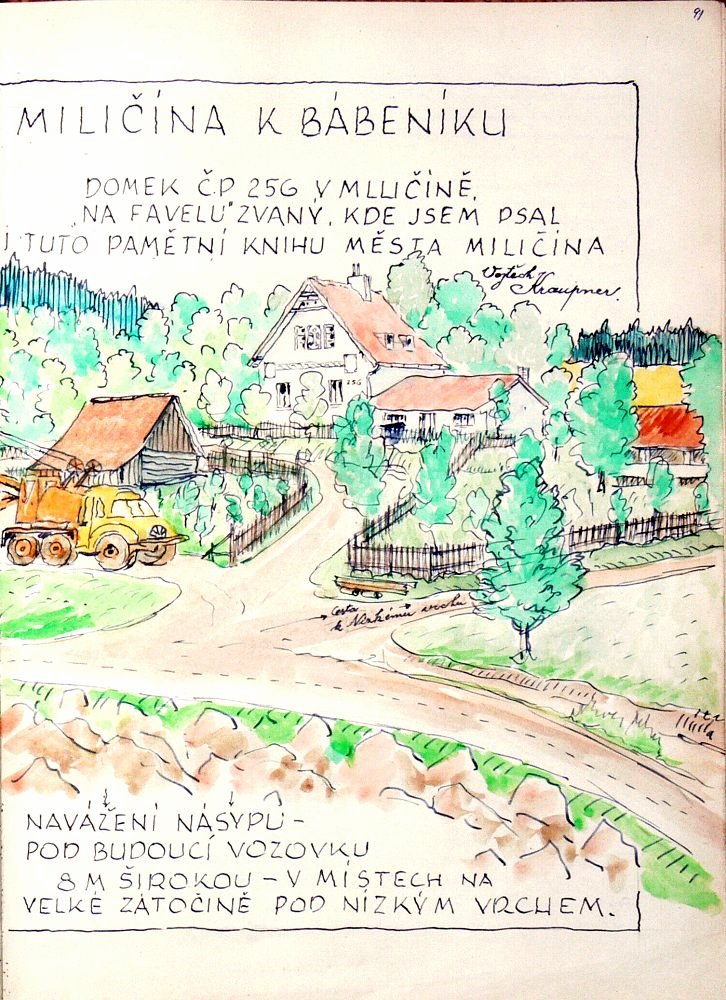 91
MILIČÍNA K BÁBENÍKU
DOMEK Č.P. 256 V MILIČÍNĚ,
„NA FAVELU" ZVANÝ, KDE JSEM PSAL
I TUTO PAMĚTNÍ KNIHU MĚSTA MILIČÍNA
Vojtěch
Kraupner.
256
cesta
k Nízkému vrchu
NAVÁŽENÍ NÁSYPŮ -
POD BUDOUCÍ VOZOVKU
8 M ŠIROKOU - V MÍSTECH NA
VELKÉ ZÁTOČINĚ POD NÍZKÝM VRCHEM.